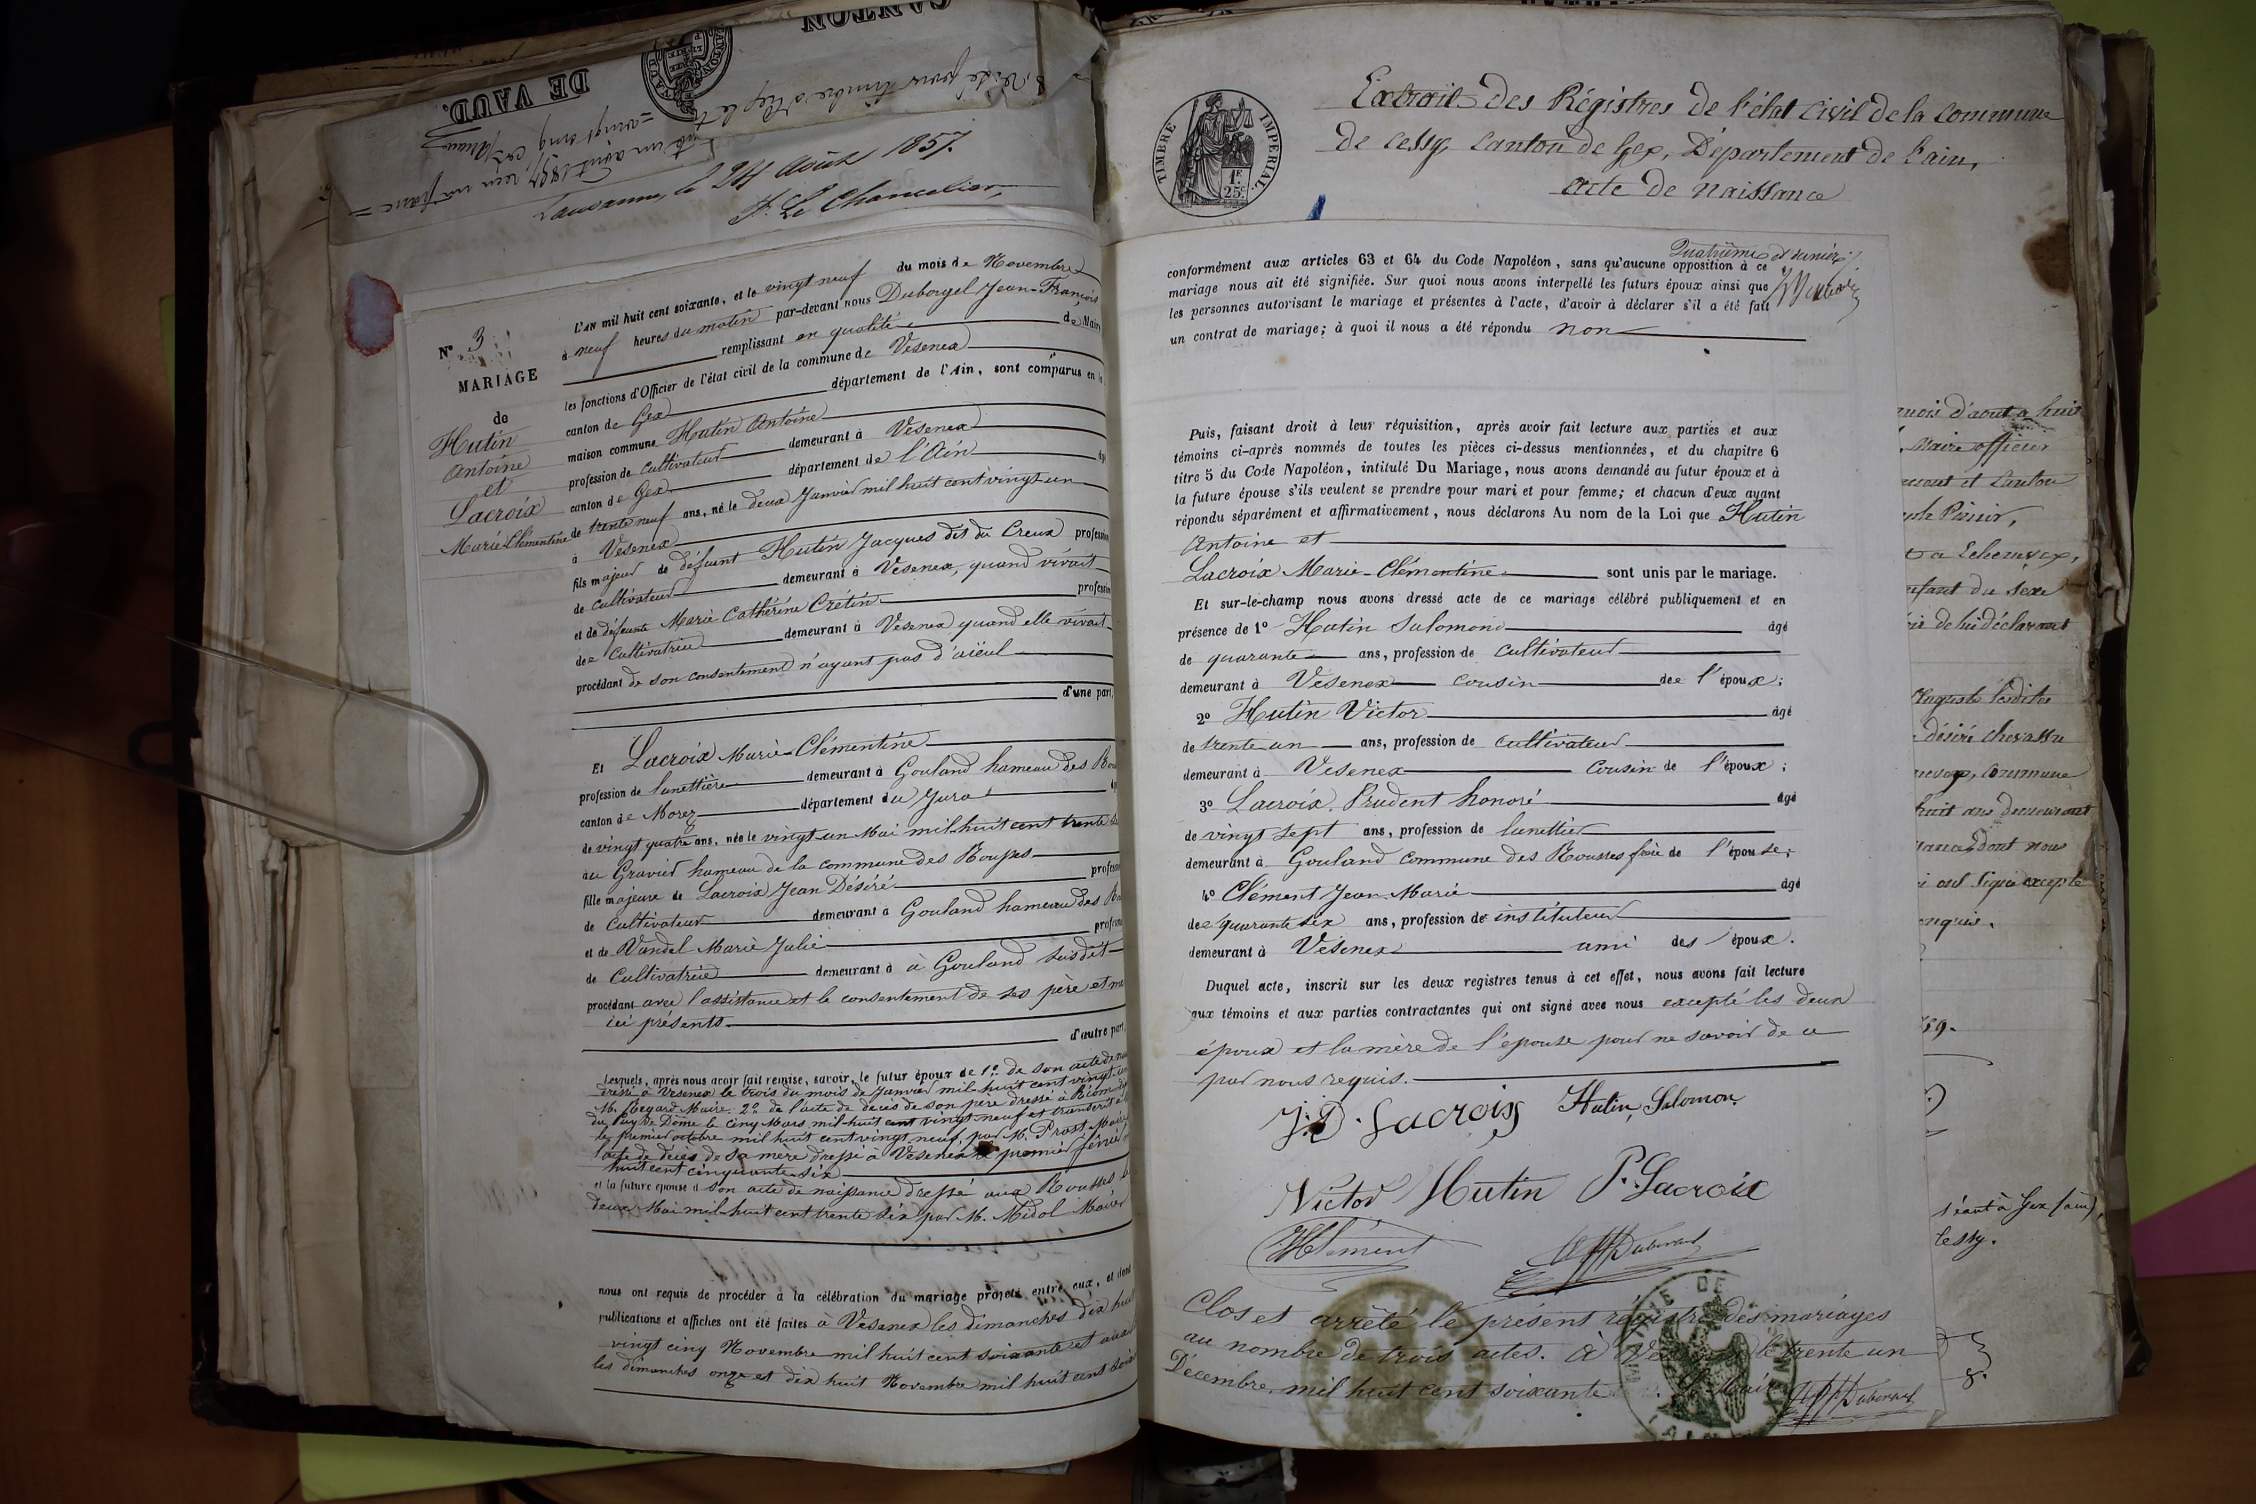 CANTON
DE VAUD.
Lausanne, le 24 Août 1857.
Le Chancelier,
N° 3
MARIAGE
de
Hutin
Antoine
et
Lacroix
Marie Clémentine
L'AN mil huit cent soixante, et le vingt neuf du mois de Novembre
à neuf heures du matin par-devant nous Duborgel Jean-François
remplissant en qualité de Maire
les fonctions d'Officier de l'état civil de la commune de Vesenex
canton de Gex département de l'Ain, sont comparus en la
maison commune Hutin Antoine
profession de cultivateur demeurant à Vesenex
canton de Gex département de l'Ain âgé
de trente neuf ans, né le deux Janvier mil huit cent vingt-un
à Vesenex
fils majeur de défunt Hutin Jacques dit du Creux profession
de cultivateur demeurant à Vesenex, quand vivait
et de défunte Marie Cathérine Crétin profession
de cultivatrice demeurant à Vesenex quand elle vivait
procédant de son consentement n'ayant pas d'aïeul
d'une part,
Et Lacroix Marie-Clémentine
profession de lunettière demeurant à Gouland hameau des
canton de Morez département du Jura
de vingt quatre ans, née le vingt-un Mai mil-huit cent trente
au Gravier hameau de la commune des Rousses
fille majeure de Lacroix Jean Désiré
de cultivateur demeurant à Gouland hameau des
et de Vandel Marie Julie
de cultivatrice demeurant à à Gouland susdit
procédant avec l'assistance et le consentement de ses père et
ici présents
d'autre part,
Lesquels, après nous avoir fait remise, savoir, le futur époux de 1° de son acte de
dressé à Vesenex le trois du mois de Janvier mil-huit cent vingt
M. Regard Maire. 2° de l'acte de décès de son père dressé à Riom
du Puy de Dôme le cinq Mars mil-huit cent vingt neuf et transcrit
le premier octobre mil huit cent vingt neuf, par M. Prost Maire
l'acte de décès de sa mère dressé à Vesenex le premier
huit cent cinquante-six
et la future épouse d son acte de naissance dressé aux Rousses
deux Mai mil-huit cent trente six par M. Midol Maire
nous ont requis de procéder à la célébration du mariage projeté entre eux, et dont
publications et affiches ont été faites à Vesenex les dimanches dix huit
vingt cinq Novembre mil huit cent soixante et
les dimanches onze et dix huit Novembre mil huit cent
TIMBRE IMPÉRIAL
1F.
25C.
Extrait des Régistres de l'état civil de la commune
de cessy, canton de Gex, Département de l'ain,
acte de naissance
Quatrième et dernier
conformément aux articles 63 et 64 du Code Napoléon, sans qu'aucune opposition à ce
mariage nous ait été signifiée. Sur quoi nous avons interpellé les futurs époux ainsi que
les personnes autorisant le mariage et présentes à l'acte, d'avoir à déclarer s'il a été fait
un contrat de mariage; à quoi il nous a été répondu non
Puis, faisant droit à leur réquisition, après avoir fait lecture aux parties et aux
témoins ci-après nommés de toutes les pièces ci-dessus mentionnées, et du chapitre 6
titre 5 du Code Napoléon, intitulé Du Mariage, nous avons demandé au futur époux et à
la future épouse s'ils veulent se prendre pour mari et pour femme; et chacun d'eux ayant
répondu séparément et affirmativement, nous déclarons Au nom de la Loi que Hutin
Antoine et
Lacroix Marie-Clémentine sont unis par le mariage.
Et sur-le-champ nous avons dressé acte de ce mariage célébré publiquement et en
présence de 1° Hutin Salomon âgé
de quarante ans, profession de cultivateur
demeurant à Vesenex cousin de l'époux;
2° Hutin Victor âgé
de trente un ans, profession de cultivateur
demeurant à Vesenex cousin de l'époux;
3° Lacroix Prudent honoré âgé
de vingt sept ans, profession de lunettier
demeurant à Gouland commune des Rousses frère de l'épouse;
4° Clément Jean-Marie âgé
de quarante six ans, profession de instituteur
demeurant à Vesenex ami des époux.
Duquel acte, inscrit sur les deux registres tenus à cet effet, nous avons fait lecture
aux témoins et aux parties contractantes qui ont signé avec nous excepté les deux
époux et la mère de l'épouse pour ne savoir de ce
par nous requis.
J.D. Lacroix Hutin, Salomon
Victor Hutin P. Lacroix
Clément
Clos et arrêté le présent régistre des mariages
au nombre de trois actes. à le trente un
Décembre, mil huit cent soixante
mois d'aout a huit
Maire officier
et Canton
a Echenevex,
enfant du sexe
de lui déclarant
désiré chevassu
commune
huit ans demeurant
dont nous
ont signé excepté
séant à Gex (ain),
Cessy.